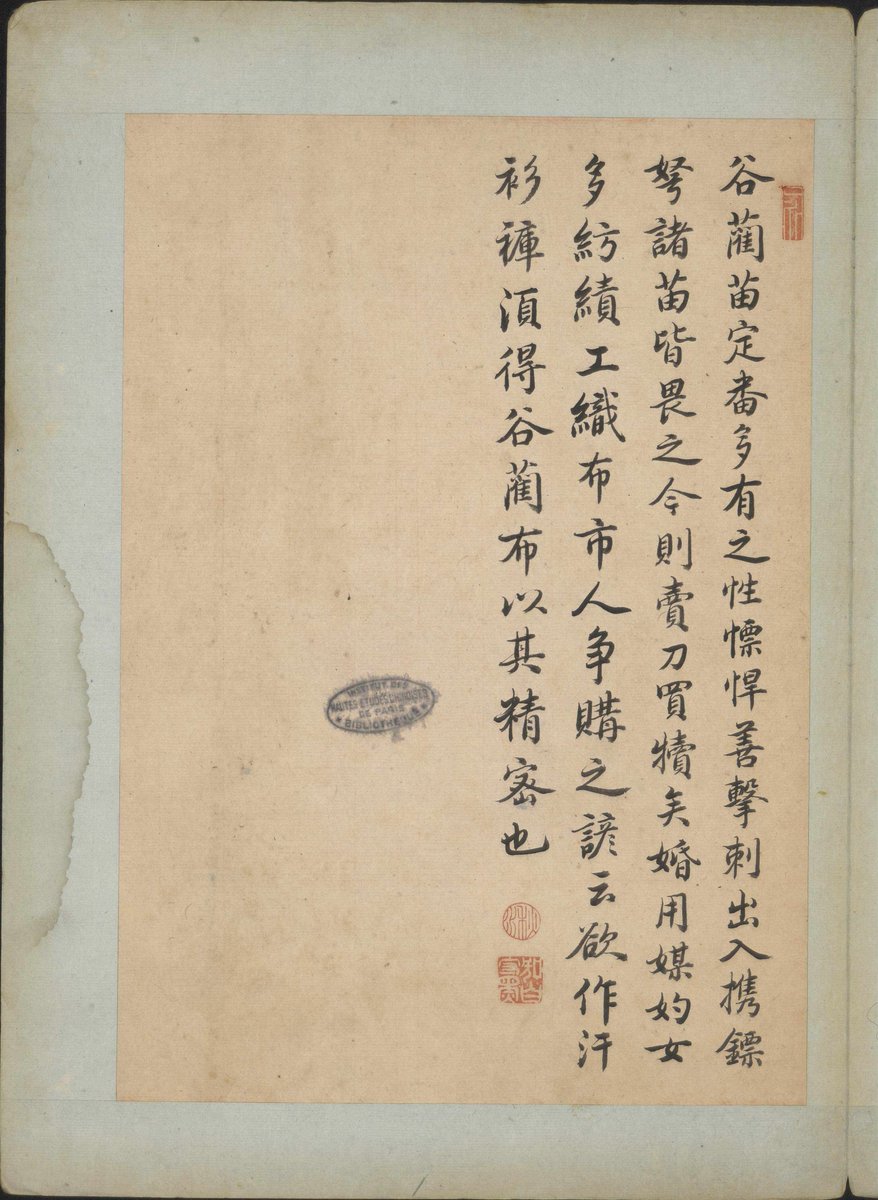 谷藺苗定番多有之性慓悍善擊刺出入携鏢
弩諸苗皆畏之今則賣刀買犢矣婚用媒妁女
多紡績工織布市人争購之諺云欲作汗
衫褲湏得谷藺布以其精宻也
INSTITUT DES
HAUTES ETUDES CHINOISES
DE PARIS
BIBLIOTHEQUE